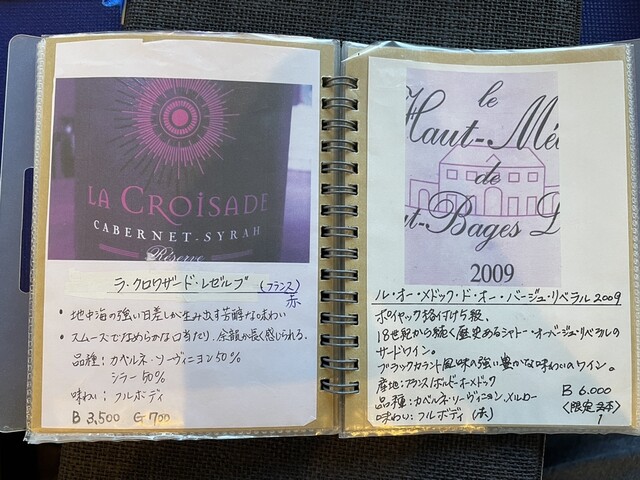 LA CROISADE
CABERNET-SYRAH
Réserve
ラ・クロワザード・レゼルブ (フランス)
赤
・地中海の強い日差しが生み出す芳醇な味わい
・スムーズでなめらかな口当たり、余韻が長く感じられる。
品種：カベルネ・ソーヴィニヨン50%
シラー50%
味わい：フルボディ
B 3,500 G 700
le
Haut-Mé
de
t-Bages L
2009
ル・オー・メドック・ド・オー・バージュ・リベラル2009
ポイヤック格付け5級、
18世紀から続く歴史あるシャトー・オー・バージュ・リベラルの
サードワイン。
ブラックカラント風味の強い豊かな味わいのワイン。
産地：フランス/ボルドー オーメドック
品種：カベルネ・ソーヴィニヨン、メルロー
味わい：フルボディ (赤)
B 6,000
<限定 本>
1